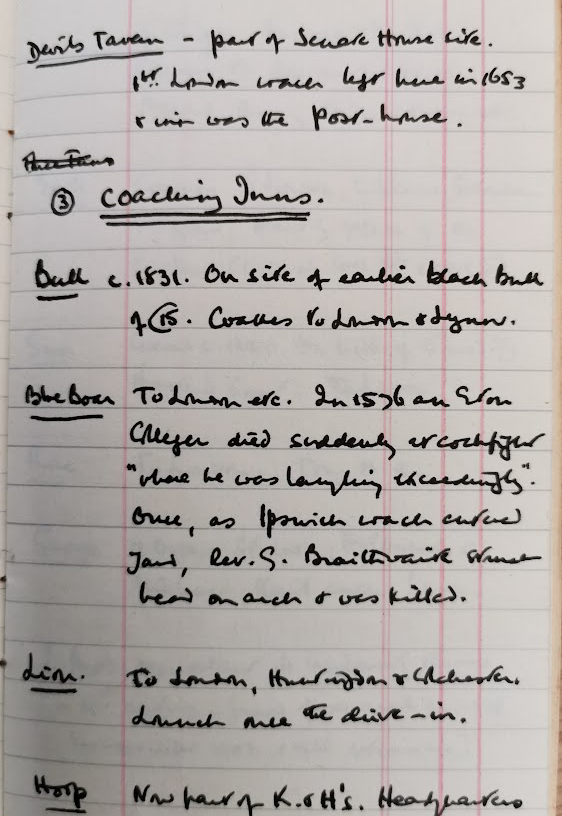 Devils Tavern - part of Senate House site.
1st London coach left here in 1653
& inn was the Post-house.
③ Coaching Inns.
Bull c. 1831. On site of earlier Black Bull
of C15. Coaches to London & Lynn.
Blue Boar To London etc. In 1576 an Eton
Colleger died suddenly at cockfight
"where he was laughing exceedingly".
Once, as Ipswich coach entered
Yard, Rev. G. Braithwaite struck
head on arch & was killed.
Lion. To London, Huntingdon & Colchester.
once the drive-in.
Hoop Now part of K. & H's. Headquarters